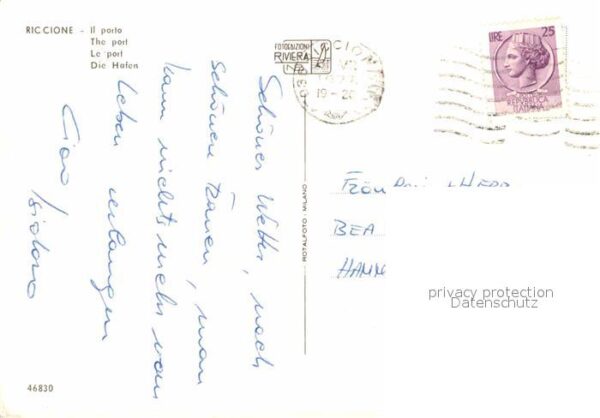 RICCIONE - Il porto
The port
Le port
Die Hafen
FOTOEDIZIONI
RIVIERA
19-20
LIRE 25
REPUBBLICA
ITALIANA
Schönes Wetter, noch
schönere Frauen, man
kann nichts mehr vom
Leben verlangen
Ciao
Isidoro
ROTALFOTO - MILANO
BEA
HANN
privacy protection
Datenschutz
46830